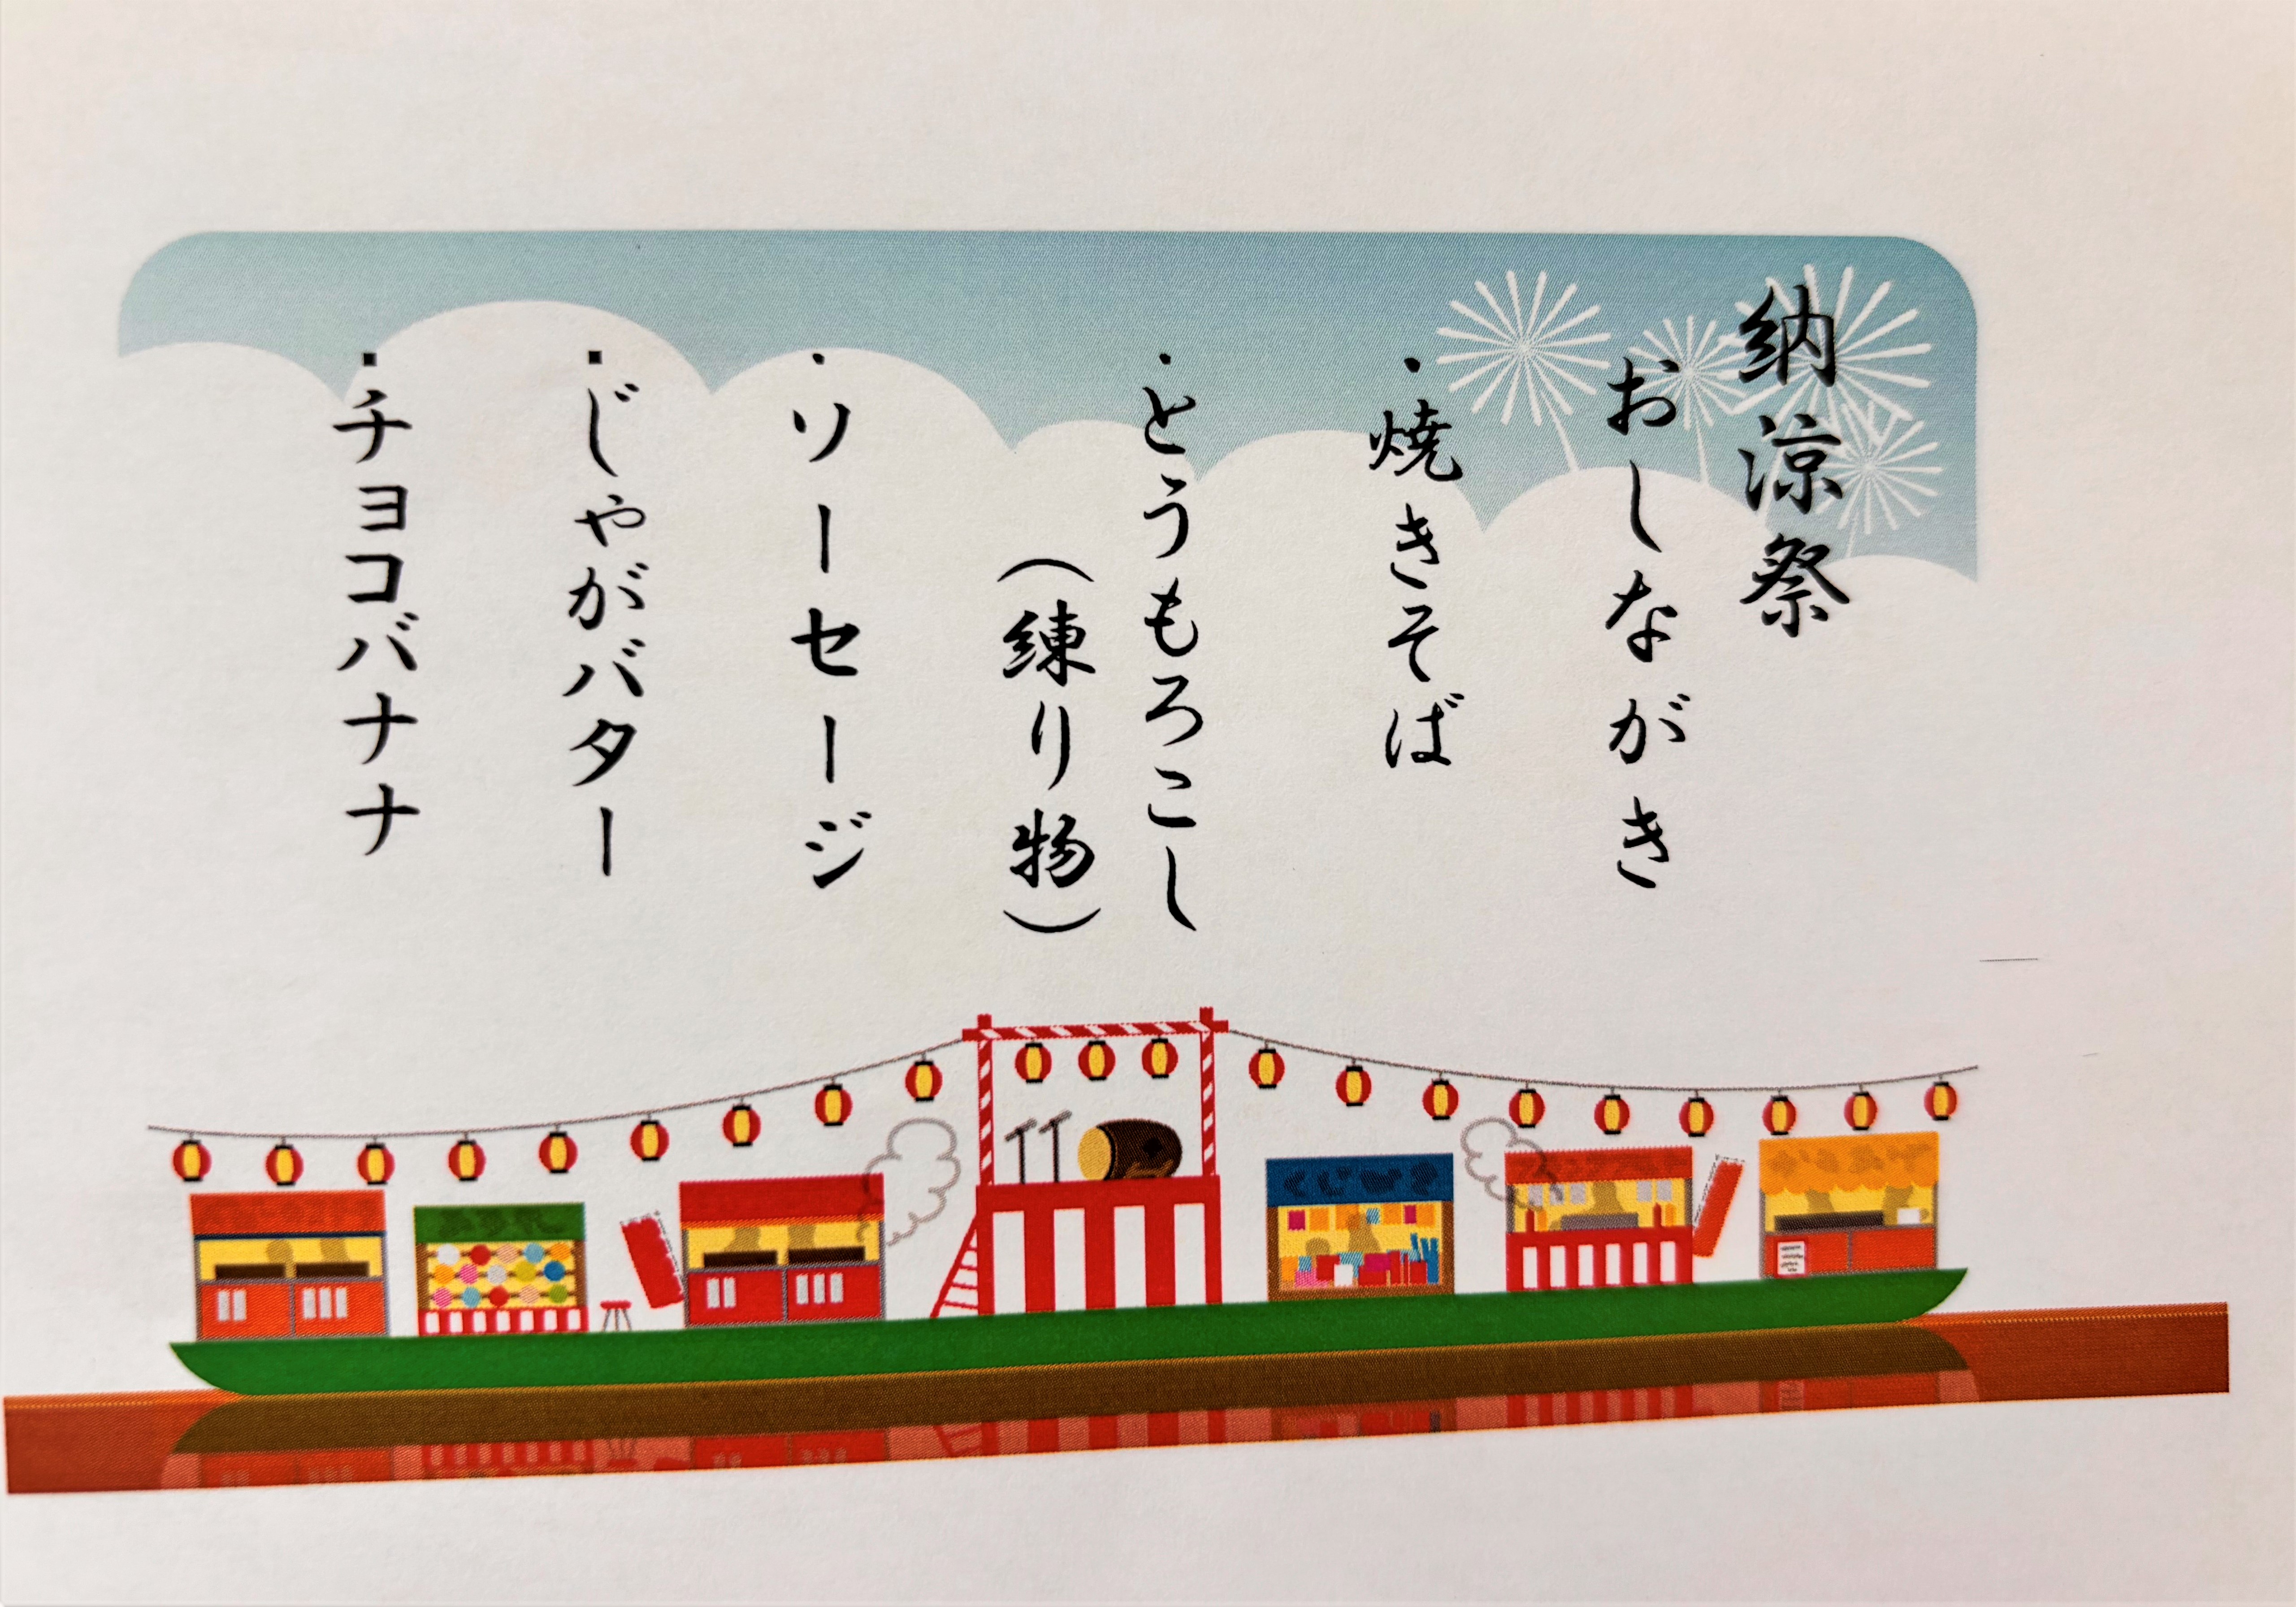 納涼祭
おしながき
・焼きそば
・とうもろこし
（練り物）
・ソーセージ
・じゃがバター
・チョコバナナ
くじびき
からあげ